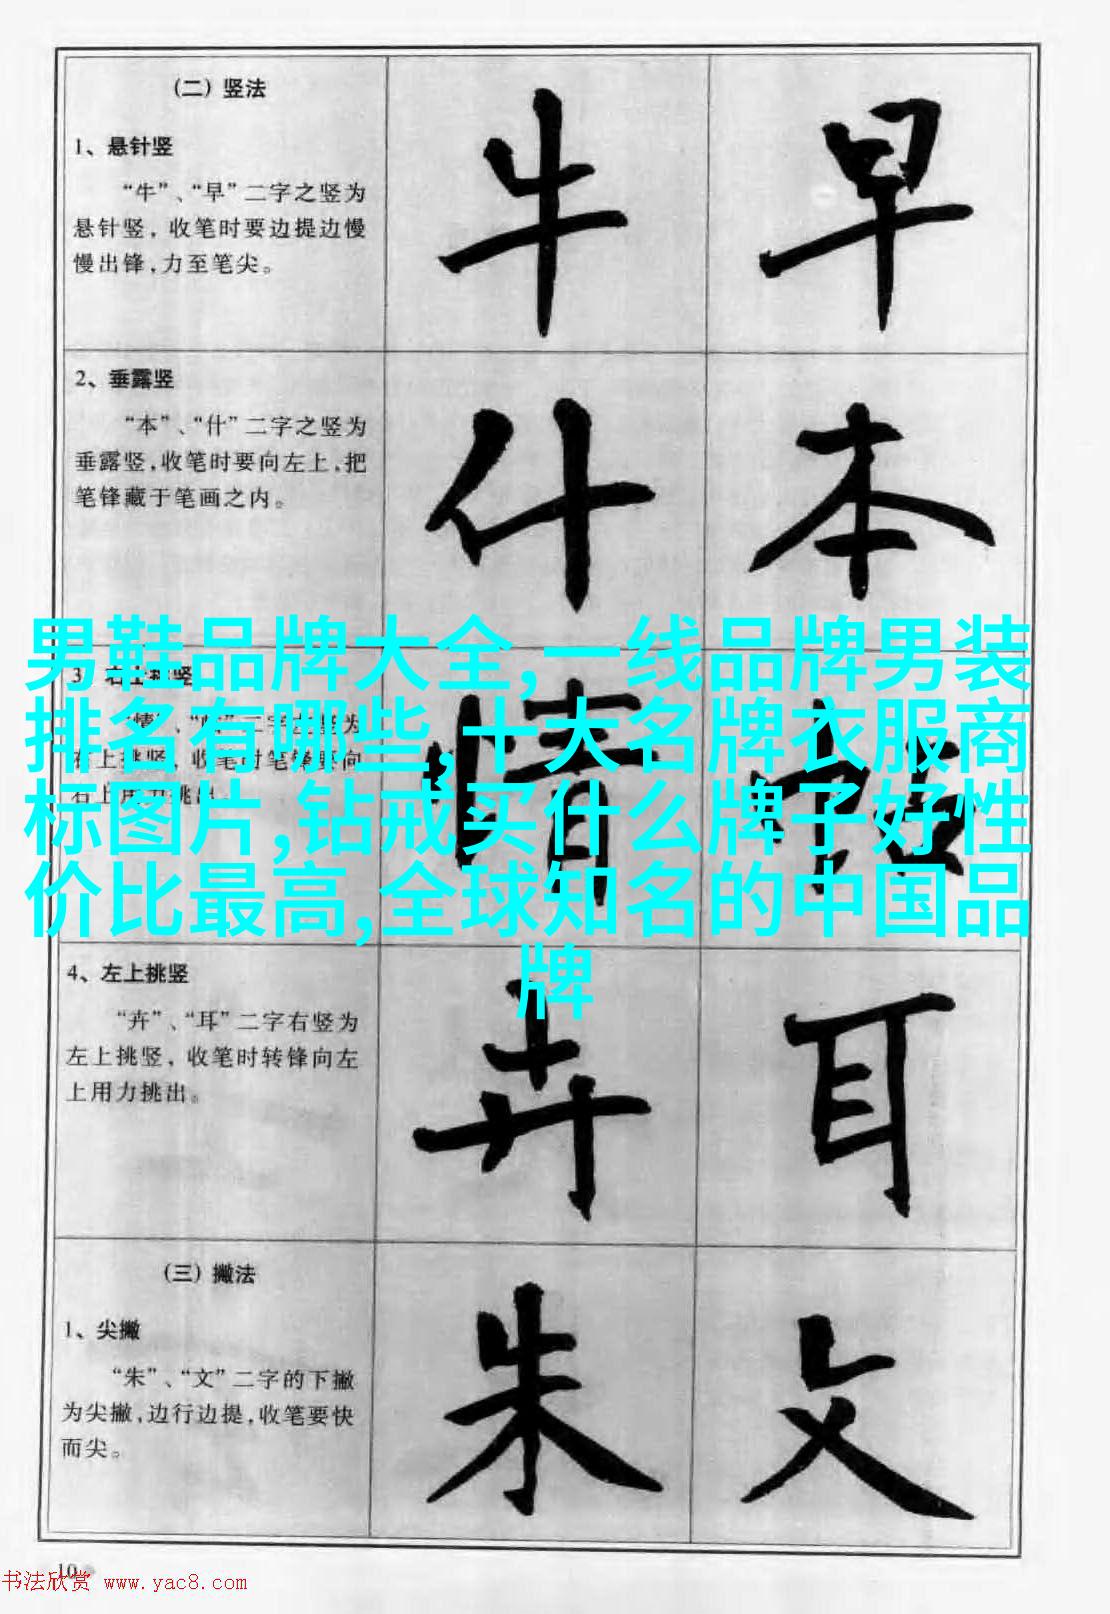 (二) 竖法
1、悬针竖
“牛”、“早”二字之竖为
悬针竖，收笔时要边提边慢
慢出锋，力至笔尖。
牛 早
2、垂露竖
“本”、“什”二字之竖为
垂露竖，收笔时要向左上，把
笔锋藏于笔画之内。
什 本
男鞋品牌大全,一线品牌男装
排名有哪些,十大名牌衣服商
标图片,钻戒买什么牌子好性
价比最高,全球知名的中国品
牌
3、右上挑竖
情
4、左上挑竖
“卉”、“耳”二字右竖为
左上挑竖，收笔时转锋向左
上用力挑出。
卉 耳
(三) 撇法
1、尖撇
“朱”、“文”二字的下撇
为尖撇，边行边提，收笔要快
而尖。
朱 文
10
书法欣赏 www.yac8.com